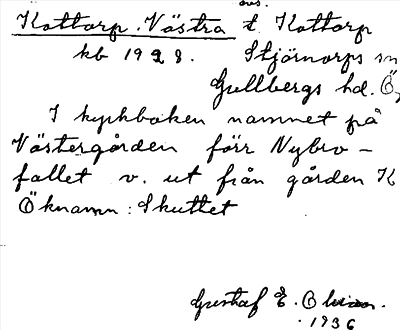 avs.
Kottorp. Västra t. Kottorp
kb 1928. Stjärnorps sn
Gullbergs hd. Ö
I kyrkboken namnet på
Västergården förr Nybro-
fallet v. ut från gården K
Öknamn: Skuttet
Gustaf E. O
1936